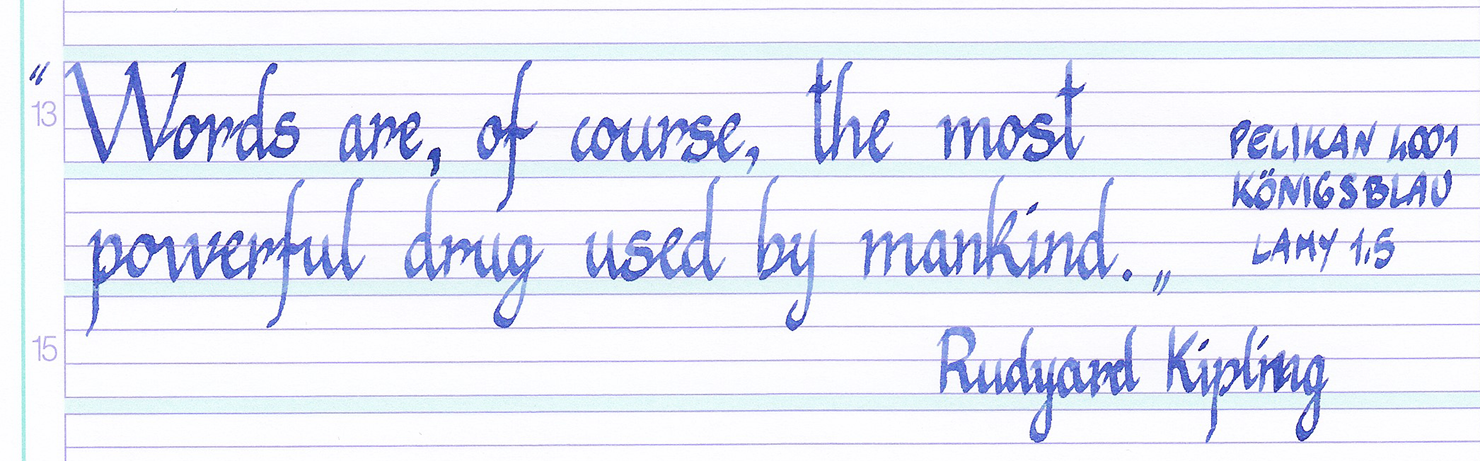 “Words are, of course, the most
powerful drug used by mankind.„
Rudyard Kipling
PELIKAN 4001
KÖNIGSBLAU
LAMY 1.5
13
15